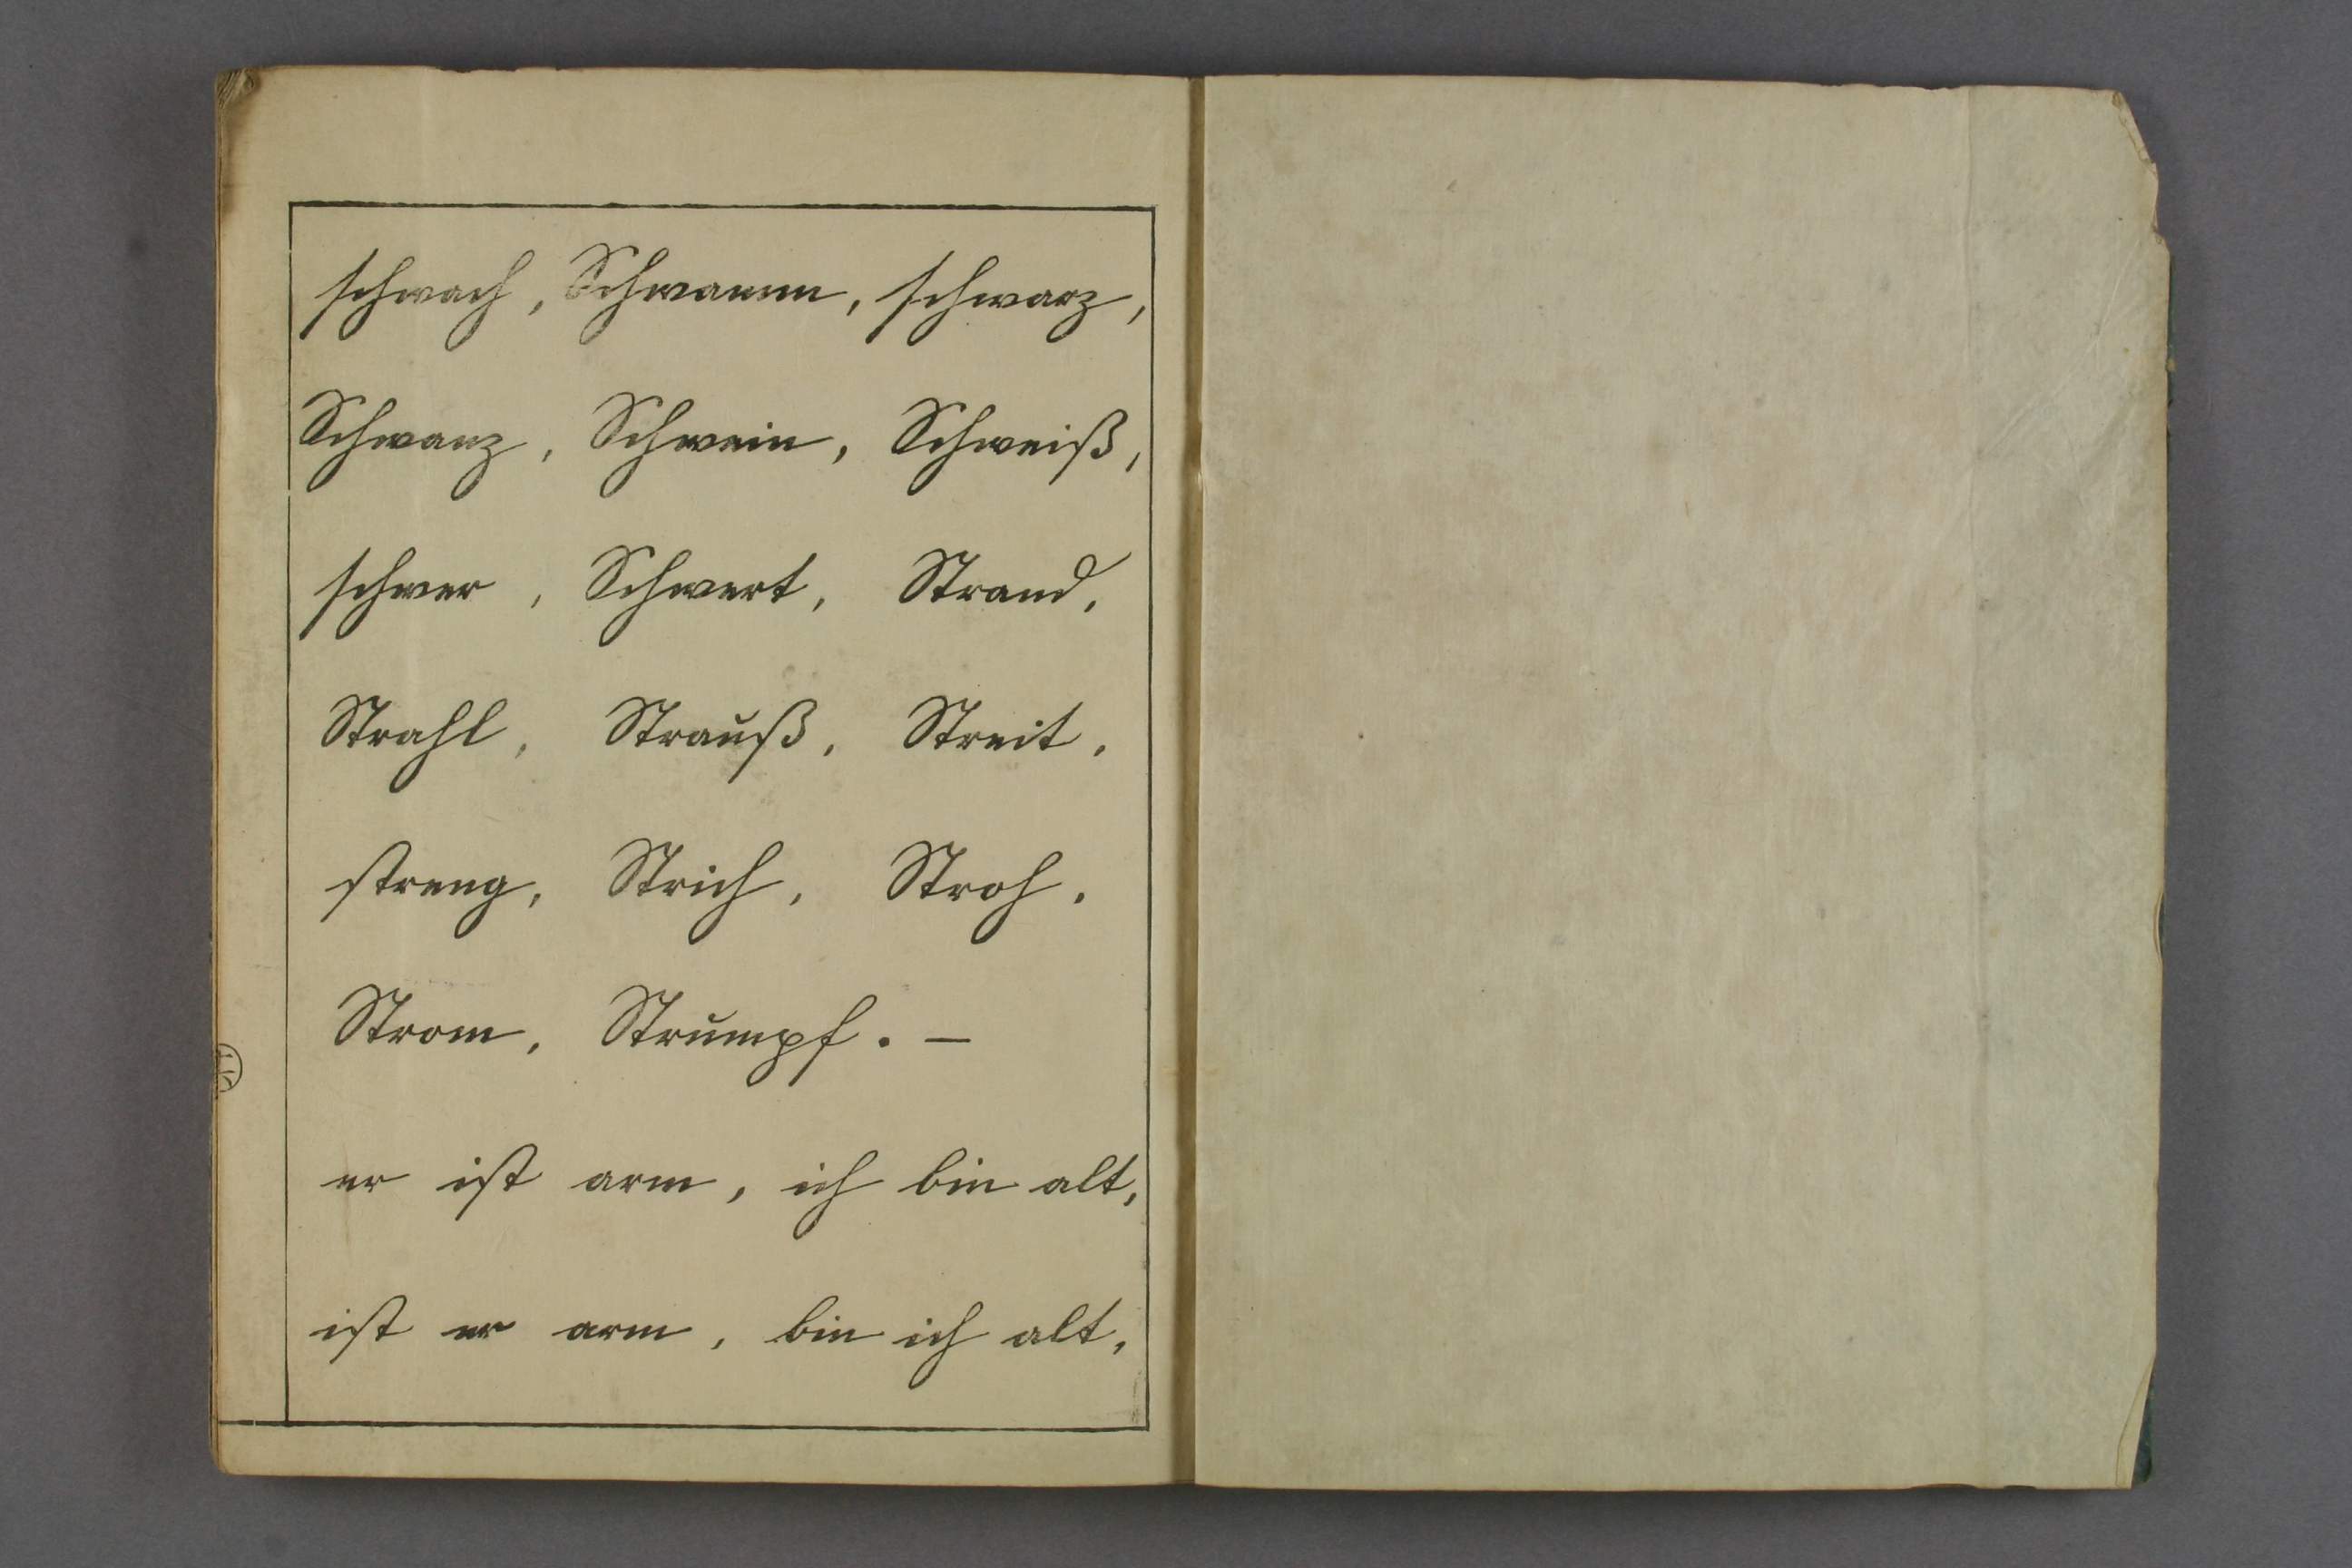 schwach, Schwamm, schwarz,
Schwanz, Schwein, Schweiß,
schwer, Schwert, Strand,
Strahl, Strauß, Streit,
streng, Strich, Stroh,
Strom, Strumpf. —
er ist arm, ich bin alt,
ist er arm, bin ich alt,